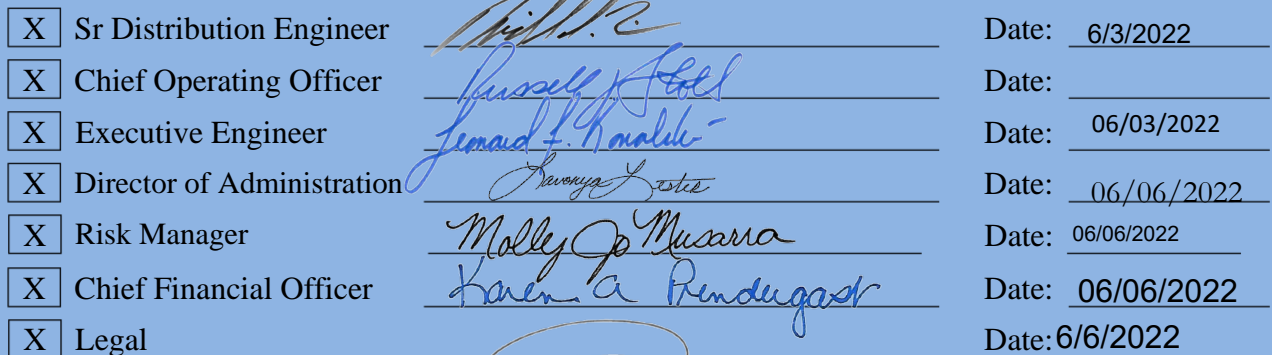 X Sr Distribution Engineer Date: 6/3/2022
X Chief Operating Officer Russell Date:
X Executive Engineer Date: 06/03/2022
X Director of Administration Lavonya Lester Date: 06/06/2022
X Risk Manager Molly Jo Musarra Date: 06/06/2022
X Chief Financial Officer Karen A Prendergast Date: 06/06/2022
X Legal Date: 6/6/2022